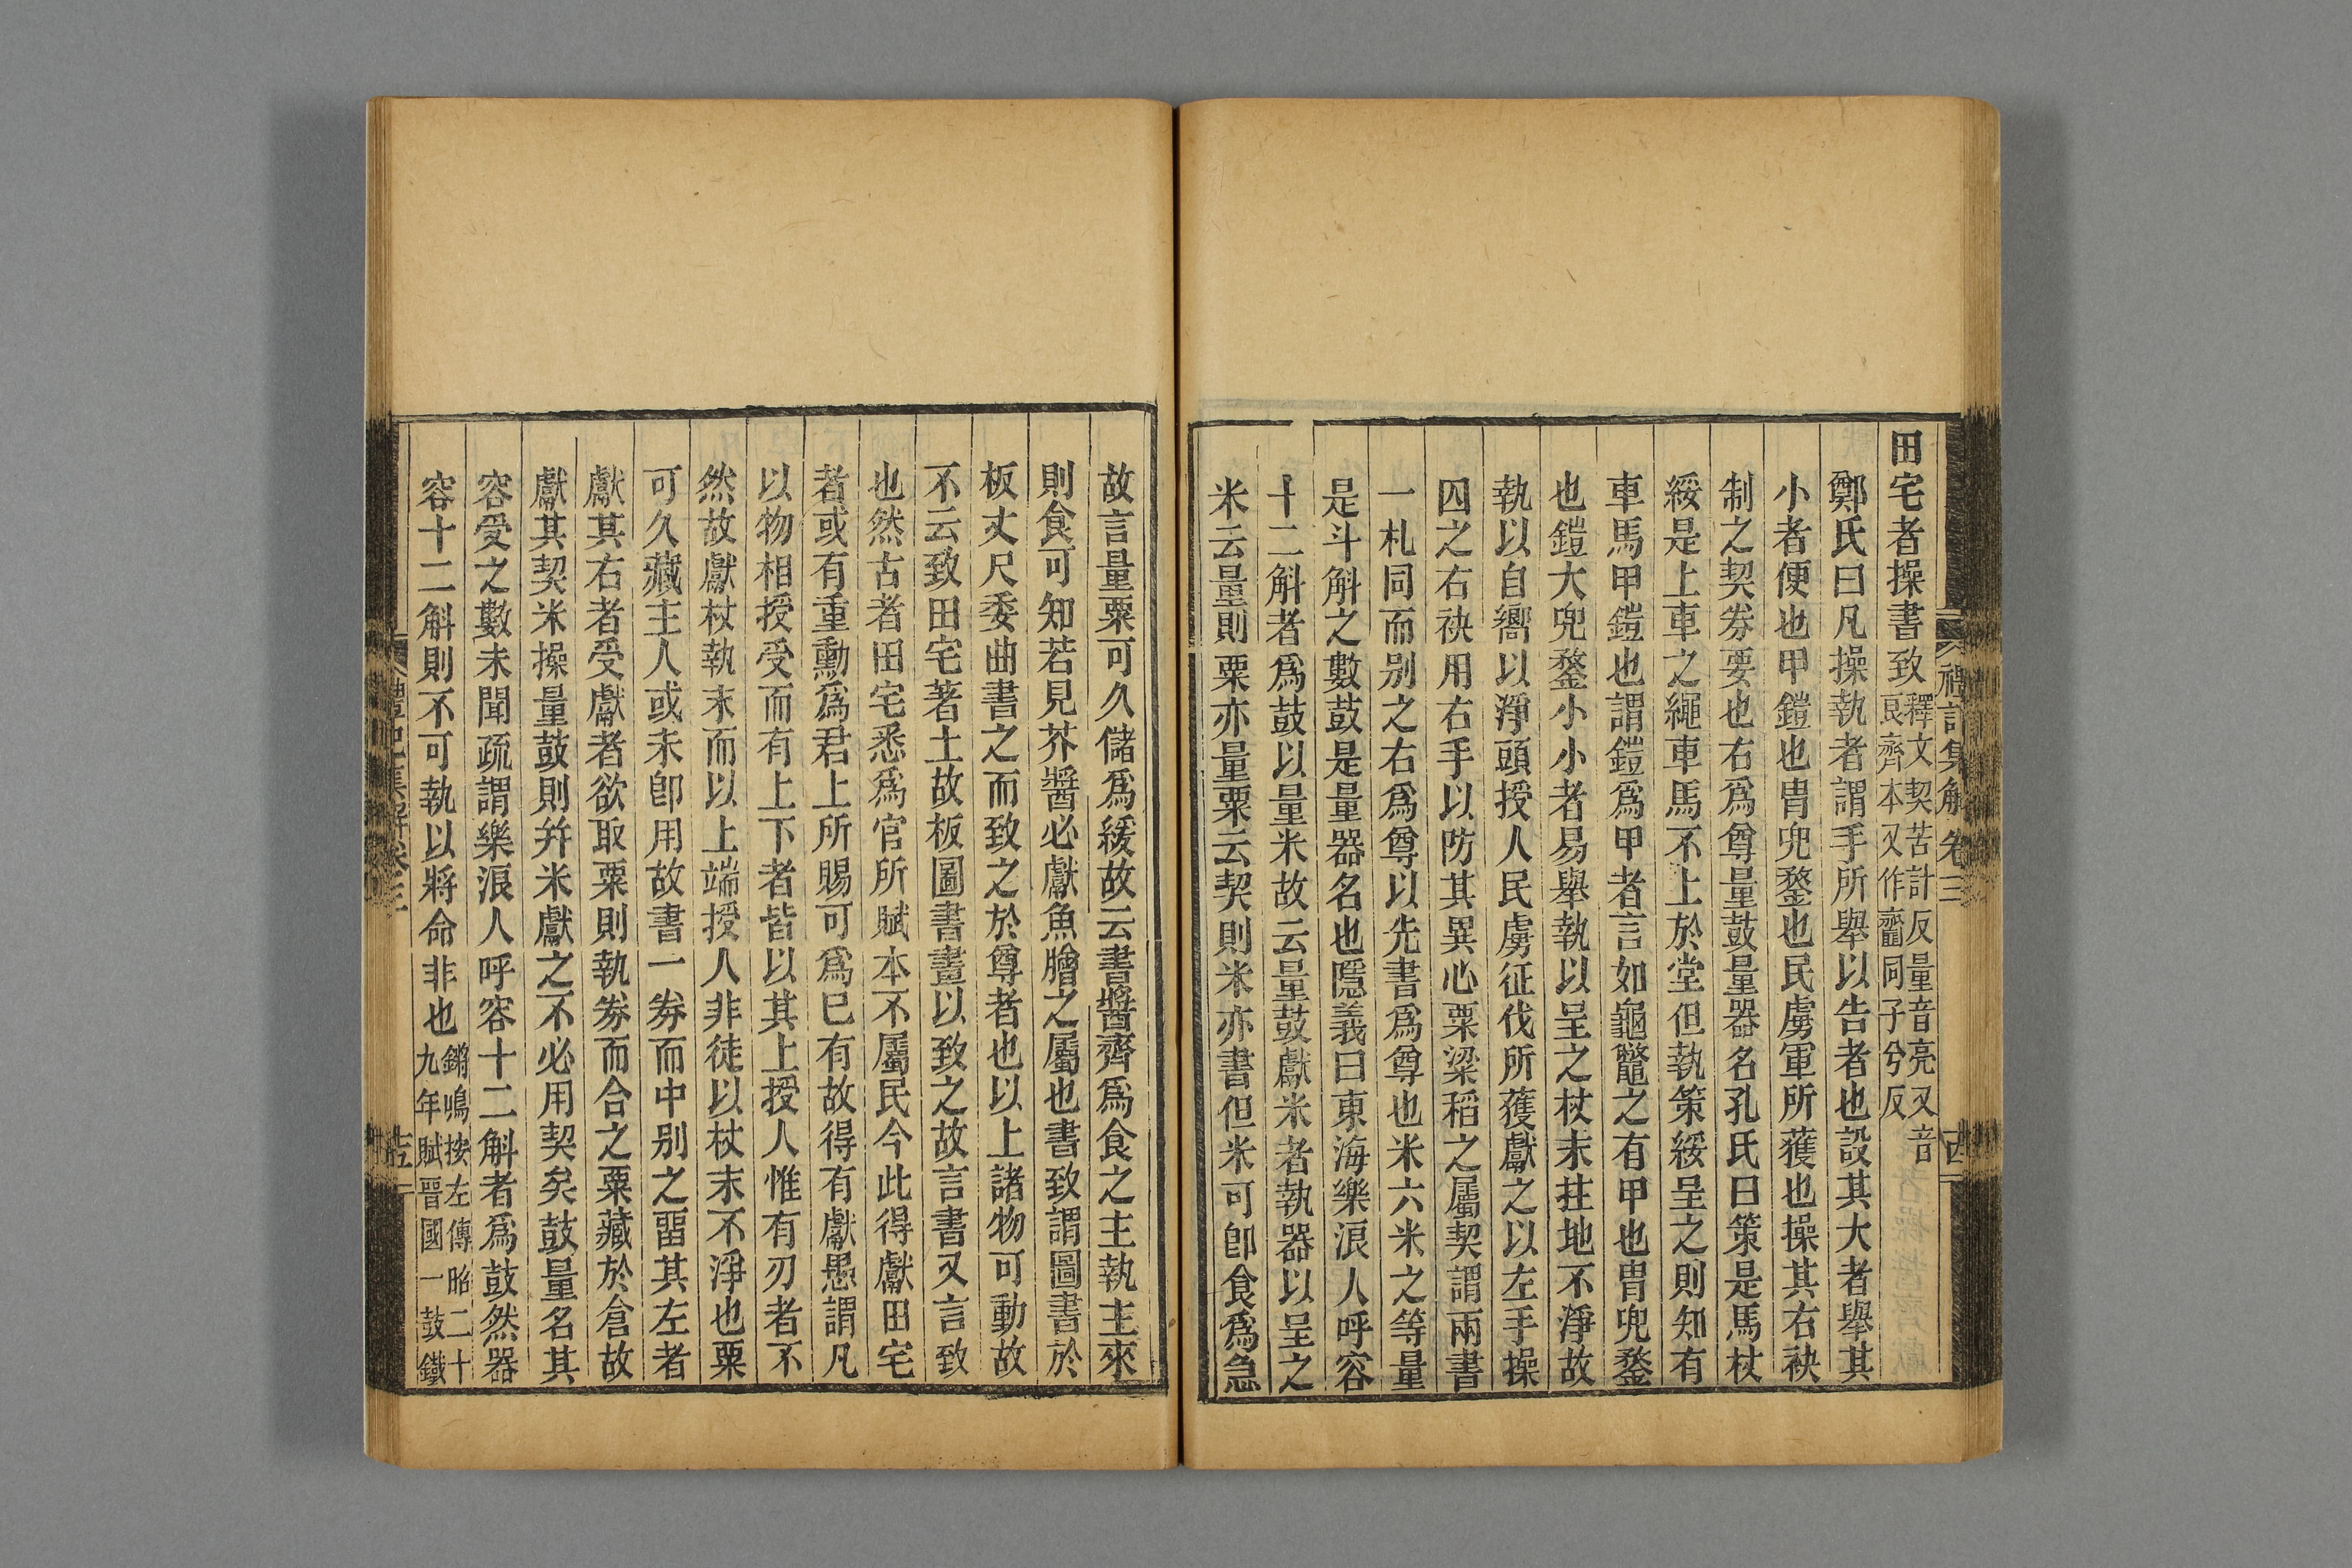 禮記集解 卷三
田宅者操書致釋文契苦計反量音亮又音
㐮齊本又作齏同子兮反
鄭氏曰凡操執者謂手所舉以告者也設其大者舉其
小者便也甲鎧也冑兜鍪也民虜軍所獲也操其右袂
制之契券要也右爲尊量鼓量器名孔氏曰策是馬杖
綏是上車之繩車馬不上於堂但執策綏呈之則知有
車馬甲鎧也謂鎧爲甲者言如龜鼈之有甲也冑兜鍪
也鎧大兜鍪小小者易舉執以呈之杖末拄地不淨故
執以自嚮以淨頭授人民虜征伐所獲獻之以左手操
囚之右袂用右手以防其異心粟梁稻之屬契謂兩書
一札同而别之右爲尊以先書爲尊也米六米之等量
是斗斛之數鼓是量器名也隱義曰東海樂浪人呼容
十二斛者爲鼓以量米故云量鼓獻米者執器以呈之
米云量則粟亦量粟云契則米亦書但米可卽食爲急
故言量粟可久儲爲緩故云書醬齊爲食之主執主來
則食可知若見芥醬必獻魚膾之屬也書致謂圖書於
板丈尺委曲書之而致之於尊者也以上諸物可動故
不云致田宅著土故板圖書畫以致之故言書又言致
也然古者田宅悉爲官所賦本不屬民今此得獻田宅
者或有重勳爲君上所賜可爲巳有故得有獻愚謂凡
以物相授受而有上下者皆以其上授人惟有刃者不
然故獻杖執末而以上端授人非徒以杖末不淨也粟
可久藏主人或未卽用故書一券而中别之畱其左者
獻其右者受獻者欲取粟則執券而合之粟藏於倉故
獻其契米操量鼓則并米獻之不必用契矣鼓量名其
容受之數未聞疏謂樂浪人呼容十二斛者爲鼓然器
容十二斛則不可執以將命非也鏘鳴按左傳昭二十
九年賦晉國一鼓鐵
禮記集解卷三